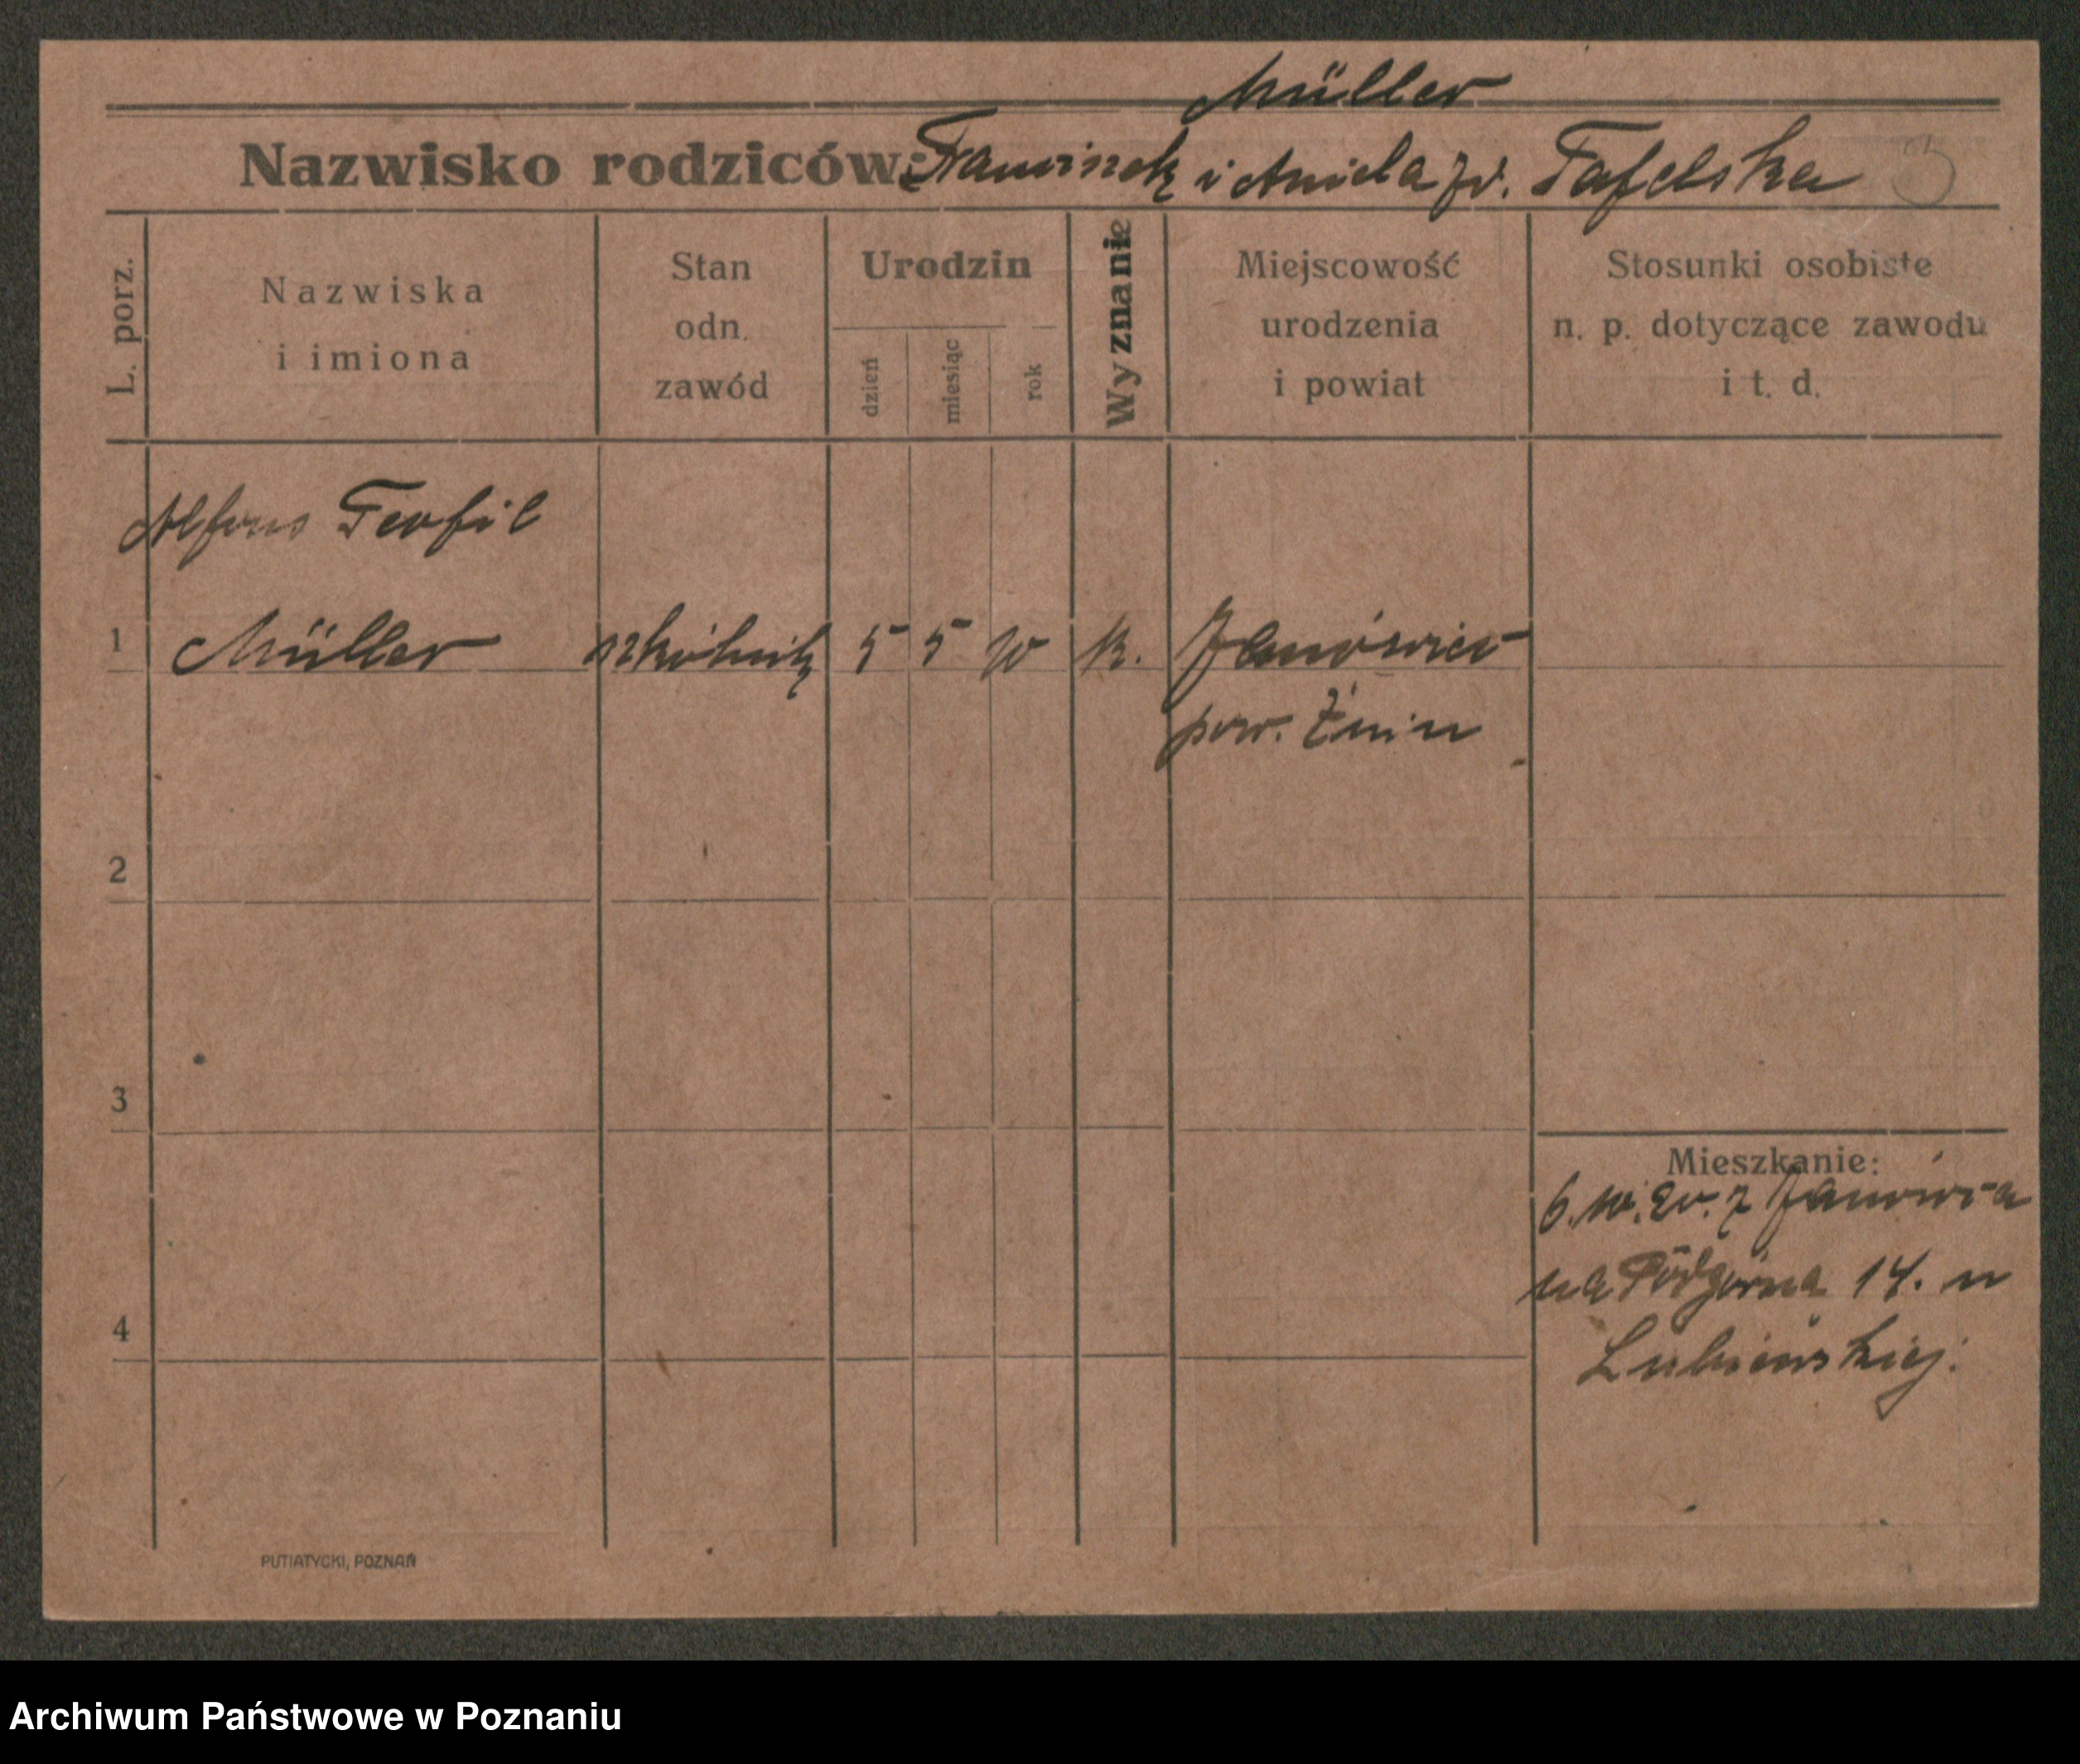 Müller
Nazwisko rodziców: Franciszek i Aniela zd. Tafelska
L. porz.
Nazwiska
i imiona
Stan
odn.
zawód
Urodzin
dzień
miesiąc
rok
Wyznanie
Miejscowość
urodzenia
i powiat
Stosunki osobiste
n. p. dotyczące zawodu
i t. d.
Alfons Teofil
1 Müller szkolnik 5 5 10 k. Janówiec
pow. Żnin
2
3
Mieszkanie:
z Janówca
na Podgórna 14. u
4
Lubieńskiej.
PUTIATYCKI, POZNAŃ
Archiwum Państwowe w Poznaniu